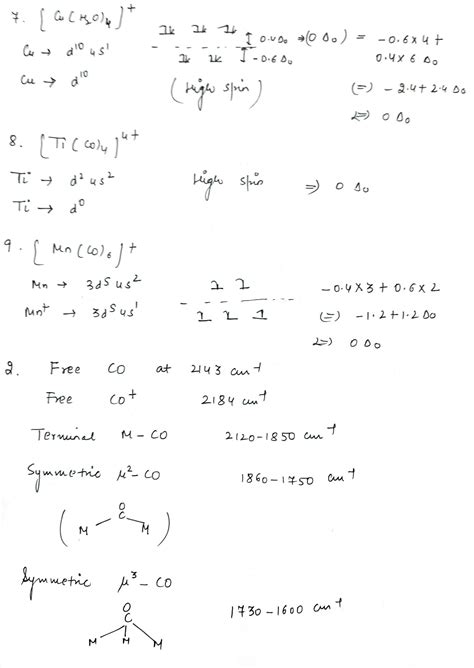 7. [Cu(H2O)4]+
Cu → d10 4s1
Cu → d10
0.4Δo ⇒ (0 Δo) = -0.6×4+
-0.6Δo 0.4×6 Δo
(High spin) (=) -2.4+2.4 Δo
⇒ 0 Δo
8. [Ti(CO)4]4+
Ti → d2 4s2 High spin ⇒ 0 Δo
Ti → d0
9. [Mn(CO)6]+
Mn → 3d5 4s2 -0.4×3 + 0.6×2
Mn+ → 3d5 4s1 (=) -1.2+1.2Δo
⇒ 0 Δo
2. Free CO at 2143 cm-1
Free CO+ 2184 cm-1
Terminal M-CO 2120-1850 cm-1
Symmetric μ2-CO 1860-1750 cm-1
O
C
M M
Symmetric μ3-CO
O
C 1730-1600 cm-1
M M M